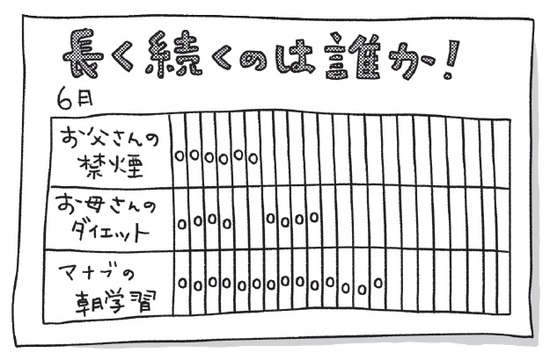 長く続くのは誰か!
6月
お父さんの
禁煙
お母さんの
ダイエット
マナブの
朝学習